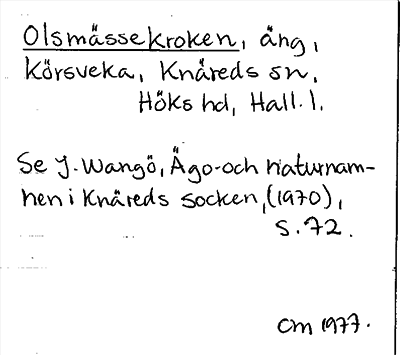 Olsmässekroken, äng,
Körsveka, Knäreds sn,
Höks hd, Hall. l.
Se J. Wangö, Ägo- och naturnam-
nen i Knäreds socken, (1970),
s. 72.
CM 1977.